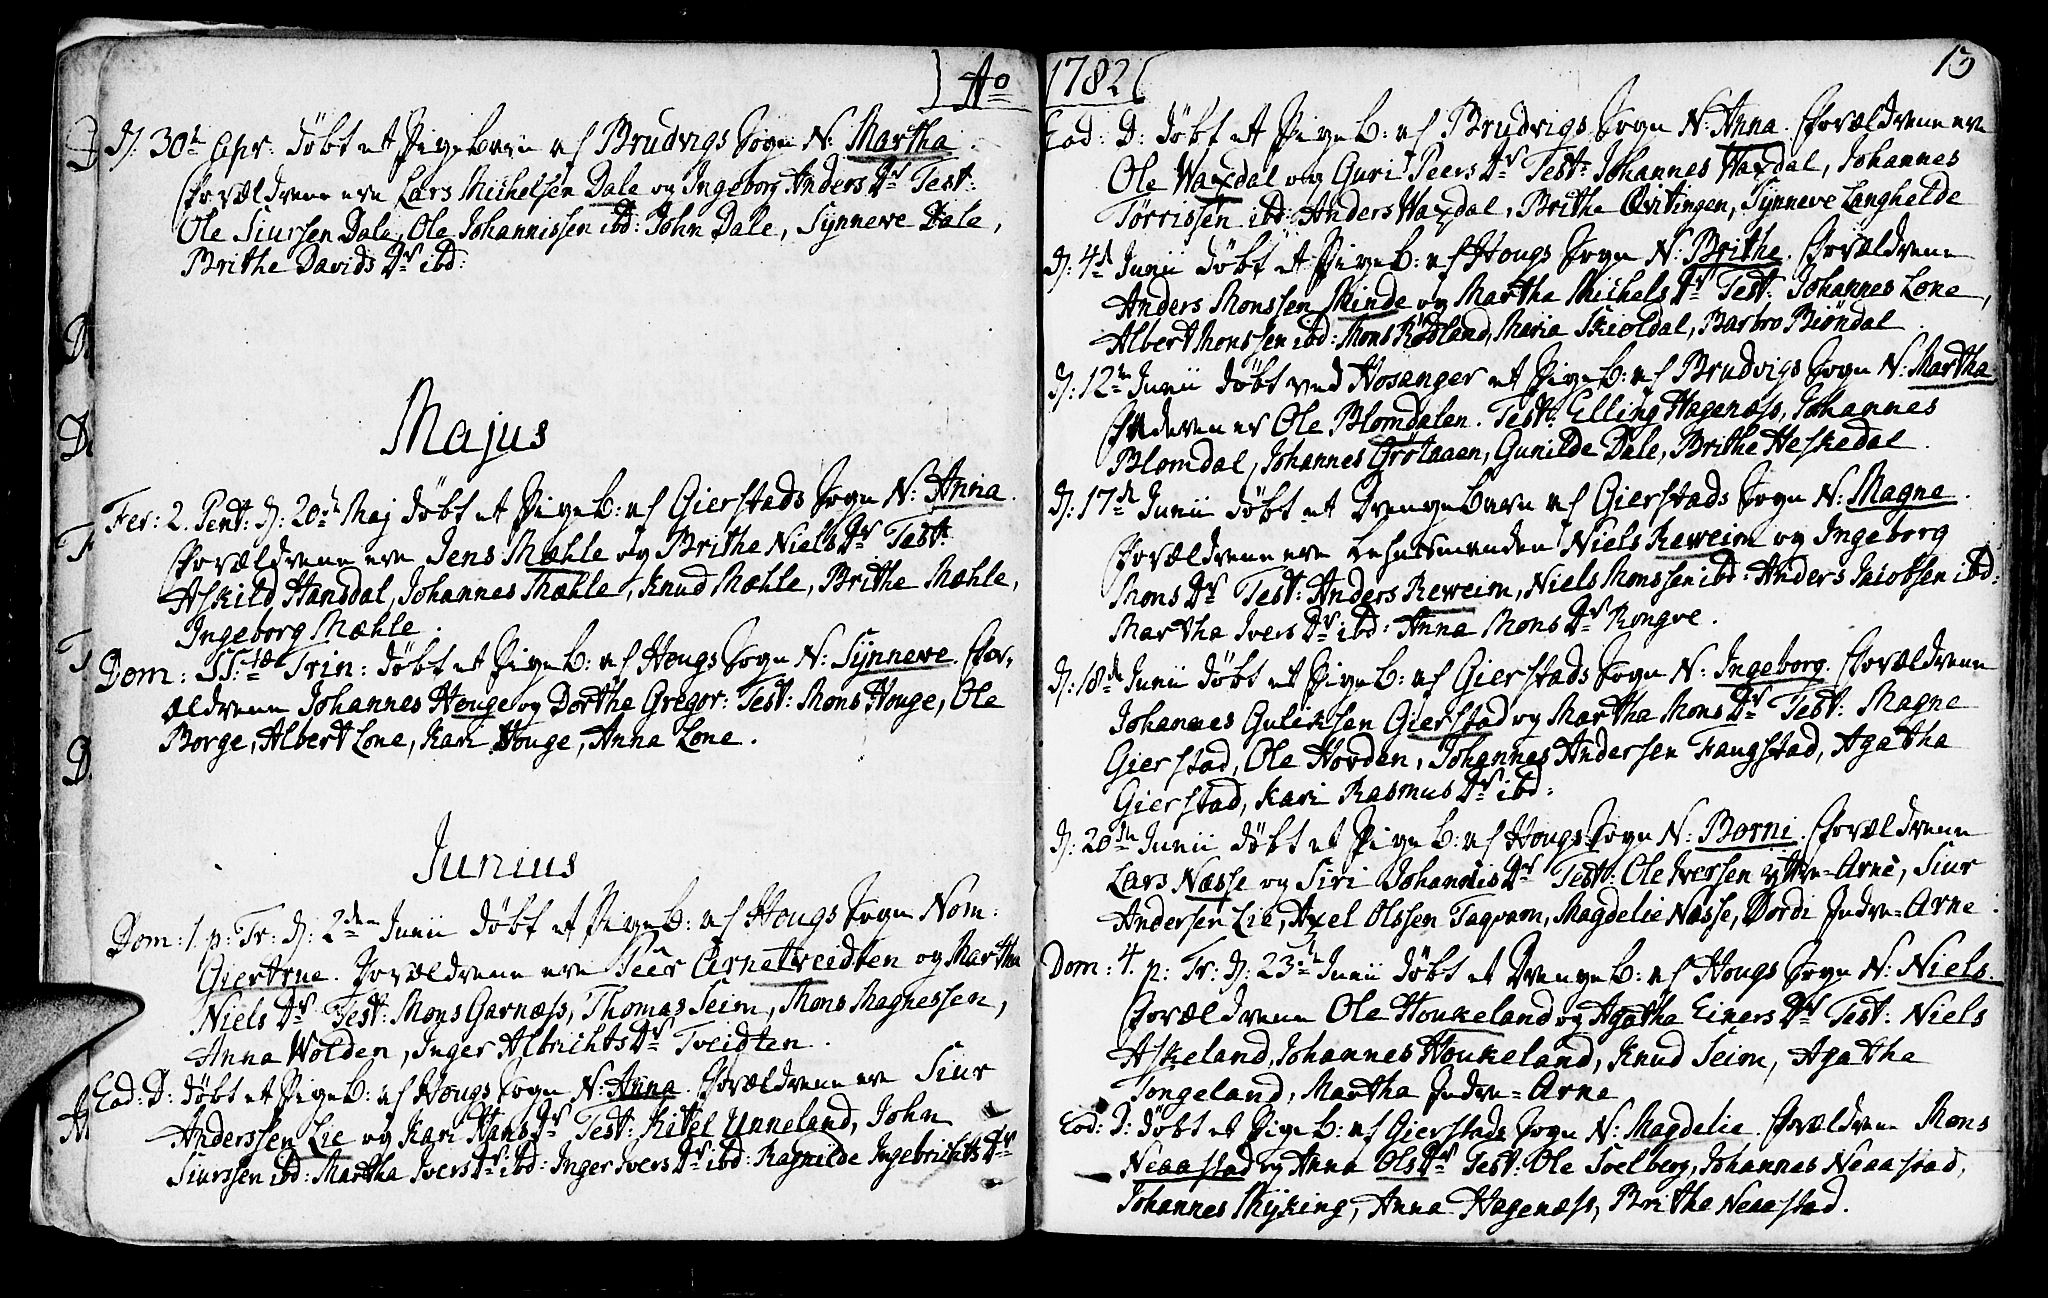 Ao
D. 30te Apr: døbt et Pigebarn af Brudvigs Sogn N: Martha.
Forældrene ere Lars Michelsen Dale og Ingeborg Anders Dr Test:
Ole Siursen Dale, Ole Johannissen ibd: John Dale, Synneve Dale,
Brithe Davids Dr ibd:
Majus
Fer: 2. Pent: D: 20de Maj døbt et Pigeb: af Gierstads Sogn N: Anna.
Forældrene ere Jens Mæhle og Brithe Niels Dr Test:
Askild Hansdal, Johannes Mæhle, Knud Mæhle, Brithe Mæhle,
Ingeborg Mæhle.
Dom: SS:tæ Trin: døbt et Pigeb: af Hougs Sogn N: Synneve. For-
ældrene Johannes Houge og Dorthe Gregor: Test: Mons Houge, Ole
Borge, Albert Lone, Kari Houge, Anna Lone.
Junius
Dom: 1. p: Tr: D: 2den Junii døbt et Pigeb: af Hougs Sogn Nom:
Giertrue. Forældrene ere Peer Arnetveidten og Martha
Niels Dr Test: Mons Garnæss, Thomas Seim, Mons Magnessen,
Anna Wolden, Inger Albrichts Dr Tveidten.
Eod: D: døbt et Pigeb: af Hougs Sogn N: Anna. Forældrene ere Siur
Anderssen Lie og Kari Hans Dr Test: Kitel Unneland, John
Siurssen ibd: Martha Ivers Dr ibd: Inger Ivers Dr ibd: Ragnilde Ingebrichts Dr
1782
13
Eod: D: døbt et Pigeb: af Brudvigs Sogn N: Anna. Forældrene ere
Ole Waxdal og Guri Peers Dr Test: Johannes Waxdal, Johannes
Tørrissen ibd: Anders Waxdal, Brithe Qvitingen, Synneve Langhelde
D: 4de Junii døbt et Pigeb: af Hougs Sogn N: Brithe. Forældrene
Anders Monssen Hinde og Martha Michels Dr Test: Johannes Lone,
Albert Monssen ibd: Mons Rødland, Maria Skioldal, Barbro Biøndal
D: 12te Junii døbt ved Hosanger et Pigeb: af Brudvigs Sogn N: Martha
Faderen er Ole Blomdalen. Test: Elling Hagenæss, Johannes
Blomdal, Johannes Grøtaaen, Gunilde Dale, Brithe Heskedal.
D: 17de Junii døbt et Drengebarn af Gierstads Sogn N: Magne.
Forældrene ere Lehnsmanden Niels Reweim og Ingeborg
Mons Dr Test: Anders Reweim, Niels Monssen ibd: Anders Jacobsen ibd:
Martha Ivers Dr ibd: Anna Mons Dr Rongve.
D: 18de Junii døbt et Pigeb: af Gierstads Sogn N: Ingeborg. Forældrene
Johannes Guliksen Gierstad og Martha Mons Dr Test: Magne
Gierstad, Ole Hovden, Johannes Andersen Faugstad, Agatha
Gierstad, Kari Rasmus Dr ibd:
D: 20de Junii døbt et Pigeb: af Hougs Sogn N: Børni. Forældrene
Lars Næsse og Siri Johannis Dr Test: Ole Iversen Yttre=Arne, Siur
Andersen Lie, Axel Olssen Taqvam, Magdelie Næsse, Dordi Indre=Arne.
Dom: 4. p: Tr: D: 23de Junii døbt et Drengeb: af Hougs Sogn N: Niels.
Forældrene Ole Houkeland og Agatha Einers Dr Test: Niels
Askeland, Johannes Houkeland, Knud Seim, Agatha
Tongeland, Martha Indre=Arne
Eod: D: døbt et Pigeb: af Gierstads Sogn N: Magdelie. Forældrene Mons
Neaastad og Anna Ols Dr Test: Ole Soelberg, Johannes Neaastad,
Johannes Myking, Anna Hagenæss, Brithe Neaastad.